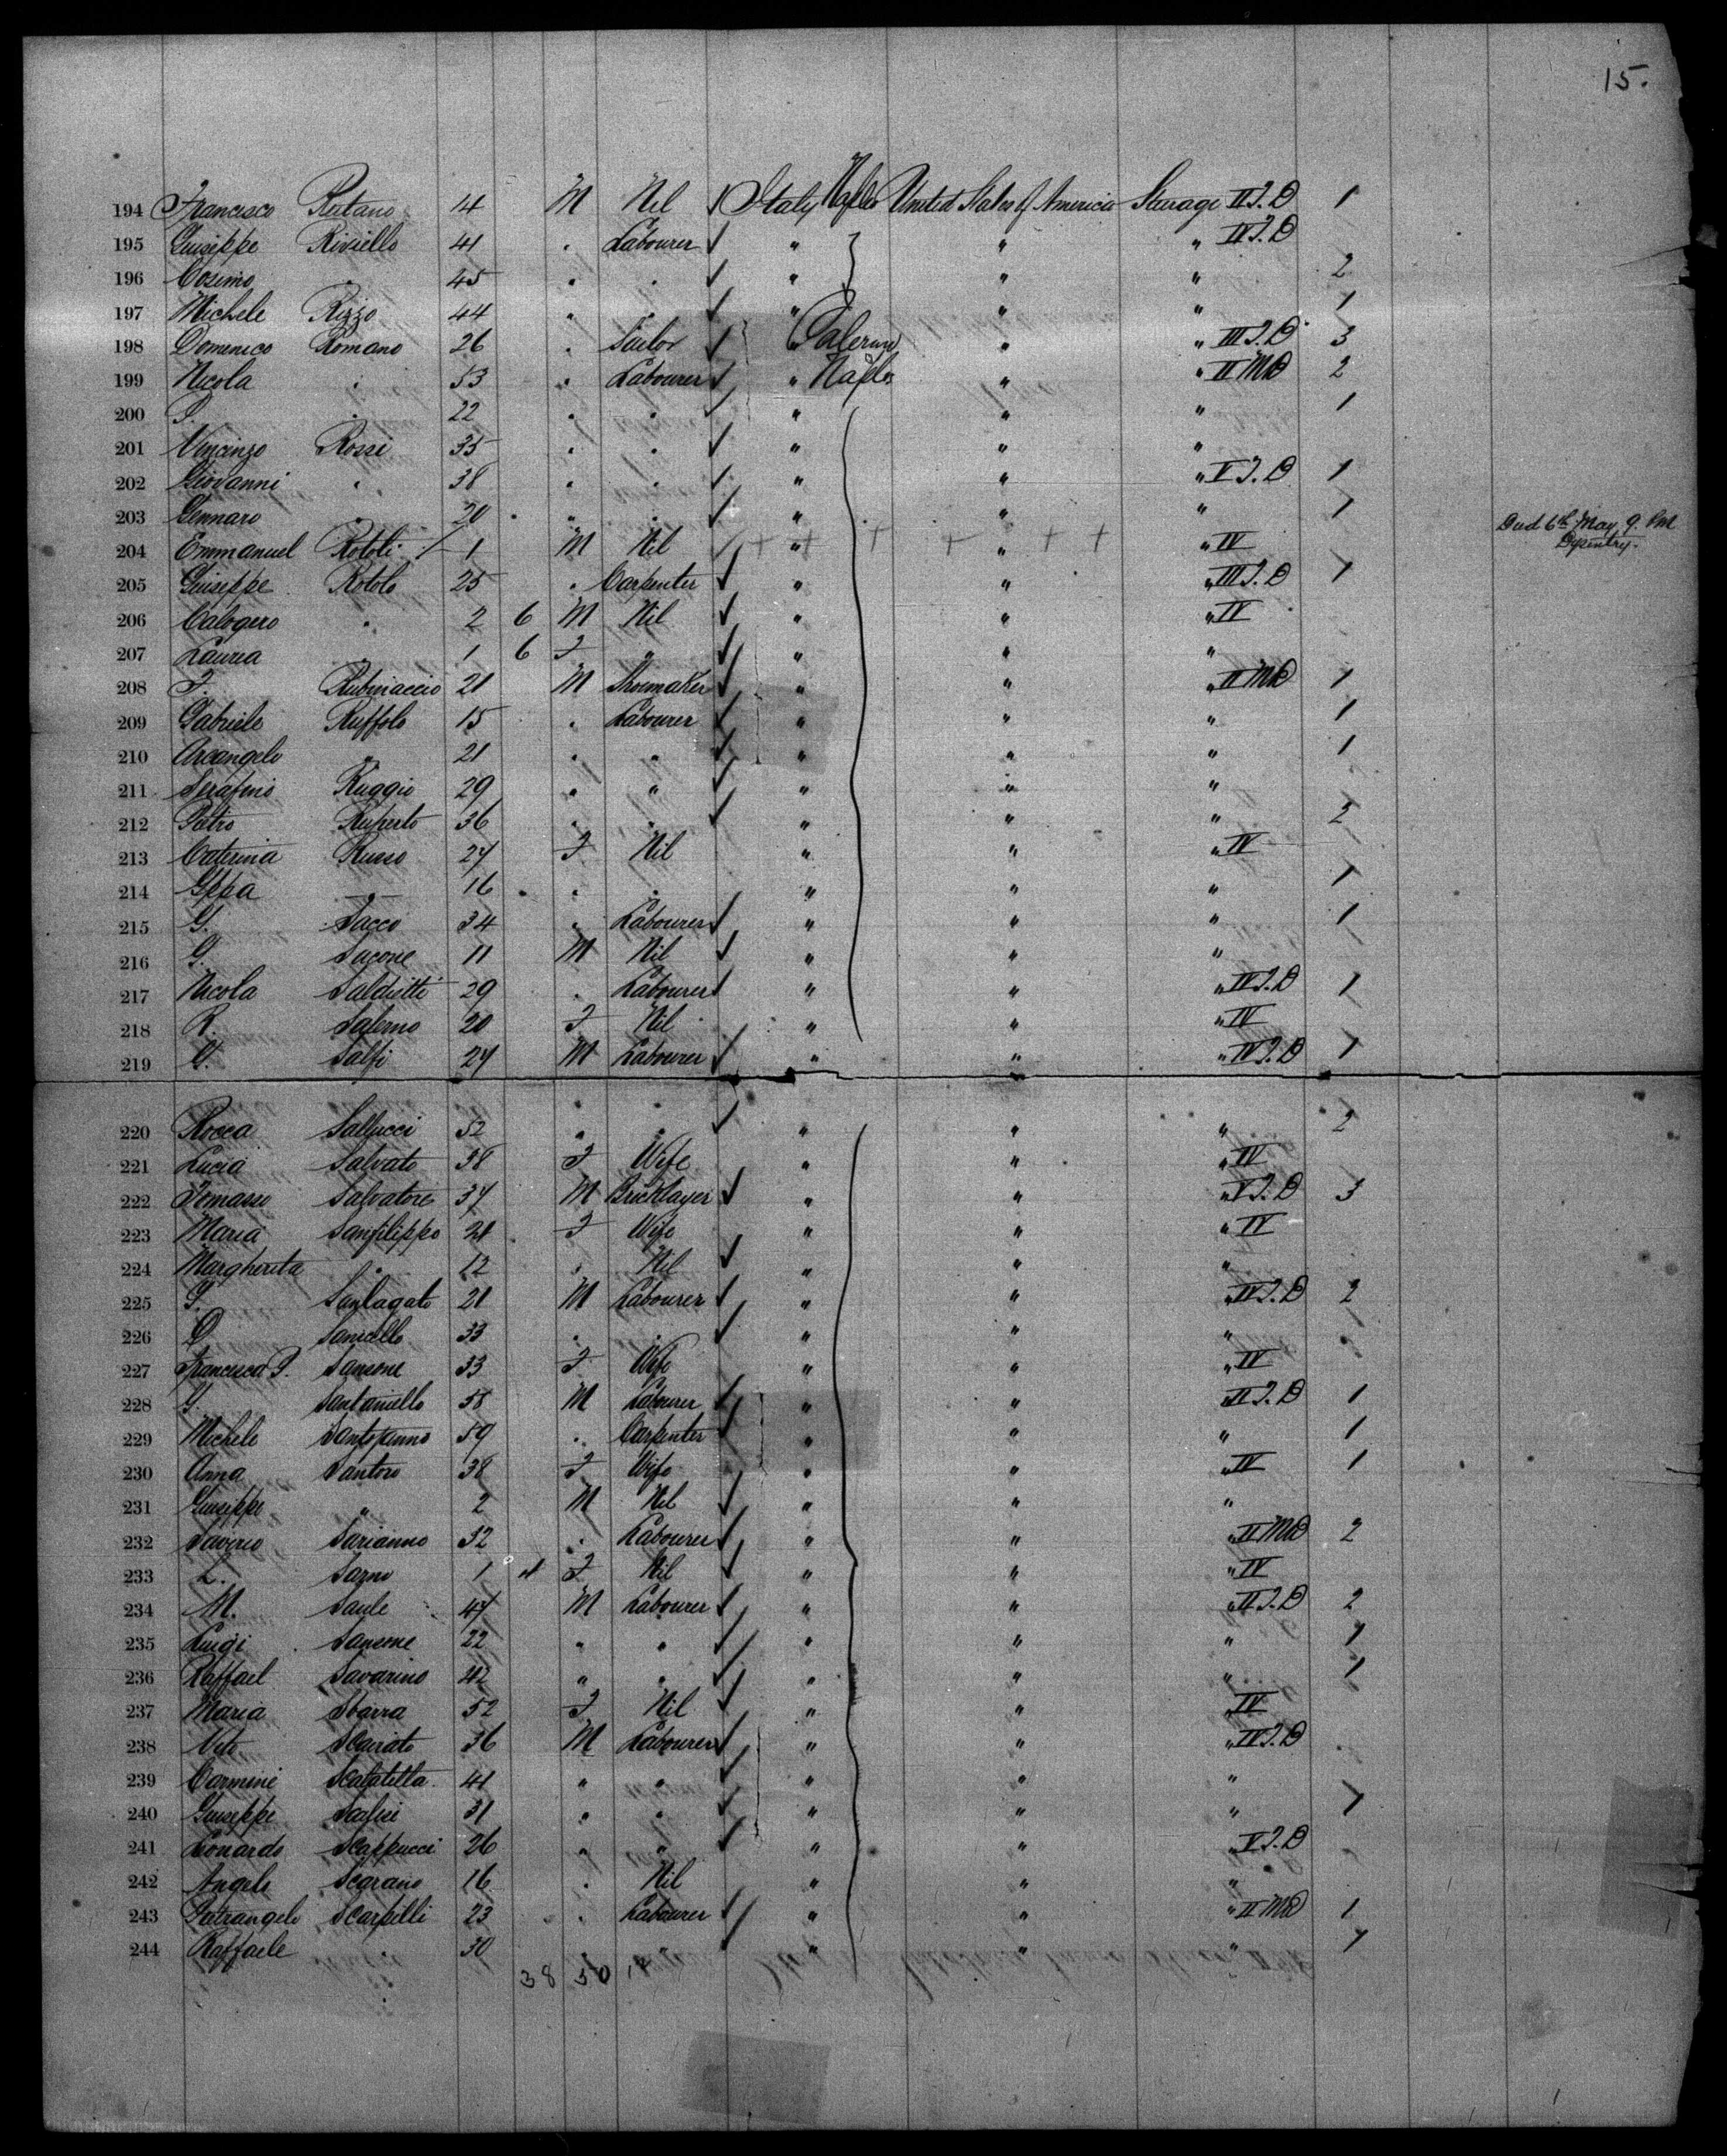 15.
194 Francisco Ritano 14 M Nil Italy Naples United States of America Stearage II T.D 1
195 Giuseppe Riviello 41 . Labourer " " " IV T.D
196 Cosimo . 45 . . " " " 2
197 Michele Rizzo 44 " " " " " 1
198 Domenico Romano 26 . Sailor " Palermo " " III T.D 3
199 Nicola . 53 . Labourer " Naples " " II MD 2
200 P. . 22 . . " " " 1
201 Vincenzo Rossi 35 . . " " "
202 Giovanni " 38 . . " " " V T.D 1
203 Gennaro . 20 " . " " " 1
204 Emmanuel Rotoli 1 M Nil " " " IV Died 6th May 9. PM
Dysentry.
205 Giuseppe Rotolo 25 . Carpenter " " " III T.D 1
206 Calogero " 2 6 M Nil " " " IV
207 Lauria . 1 6 F " " " "
208 F. Rubinaccio 21 M Shoemaker " " " II MD 1
209 Gabriele Ruffolo 15 . Labourer " " " 1
210 Arcangelo " 21 . . " " " 1
211 Serafino Ruggio 29 " " " " "
212 Pietro Ruperto 36 . . " " " 2
213 Caterina Russo 27 F Nil " " " IV
214 Gppa " 16 . . " " " 1
215 G. Sacco 34 . Labourer " " " 1
216 G. Sacone 11 M Nil " " "
217 Nicola Salduitti 29 . Labourer " " " IV T.D 1
218 R. Salerno 20 F Nil " " " IV
219 G. Salfi 27 M Labourer " " " IV T.D 1
220 Rocca Sallucci 32 " . " " " 2
221 Lucia Salvato 38 F Wife " " " IV
222 Tomasso Salvatore 37 M Bricklayer " " " V T.D 3
223 Maria Sanfilippo 21 F Wife " " " IV
224 Margherita . 12 . Nil " " "
225 G. Santagato 21 M Labourer " " " IV T.D 2
226 D Saniello 33 . . " " "
227 Francesca P. Sansone 33 F Wife " " " IV
228 G. Santaniello 58 M Labourer " " " II T.D 1
229 Michele 59 . Carpenter " " " 1
230 Anna Santoro 38 F Wife " " " IV 1
231 Giuseppe " 2 M Nil " " "
232 Saverio Sarianno 32 . Labourer " " " II MD 2
233 L. Sarno 1 4 F Nil " " " IV
234 M. Saule 47 M Labourer " " " II T.D 2
235 Luigi Sansone 22 " " " " " 1
236 Raffael Savarino 42 " " " " " 1
237 Maria Sbarra 52 F Nil " " " IV
238 Vito Scairato 36 M Labourer " " " IV T.D
239 Carmine Scalatella 41 " " " " "
240 Giuseppe Scalise 31 . " " " " 1
241 Leonardo Scappucci 26 . " " " " V T.D
242 Angelo Scarano 16 . Nil " " "
243 Pietrangelo Scarpelli 23 . Labourer " " " II MD 1
244 Raffaele . 30 . " " " " 1
38 50